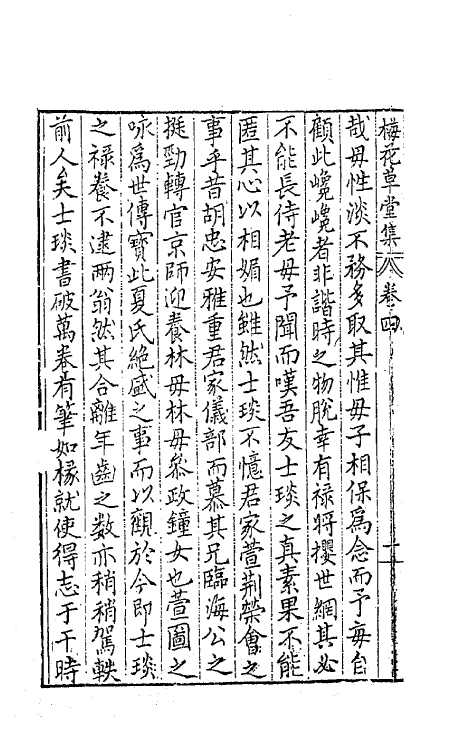 梅花草堂集 卷四 二十
哉毋性淡不務多取其惟毋子相保爲念而予每自
顧此巉巉者非諧時之物脫幸有禄將攖世網其必
不能長待老毋予聞而嘆吾友士琰之真素果不能
匿其心以相媚也雖然士琰不憶君家萱荆榮會之
事乎昔胡忠安雅重君家儀部而慕其兄臨海公之
挺勁轉官京師迎養林毋林毋叅政鐘女也萱圖之
咏爲世傳寳此夏氏絶盛之事而以觀於今即士琰
之禄養不逮兩翁然其合離年齒之數亦稍稍駕軼
前人矣士琰書破萬卷有筆如椽就使得志于干時